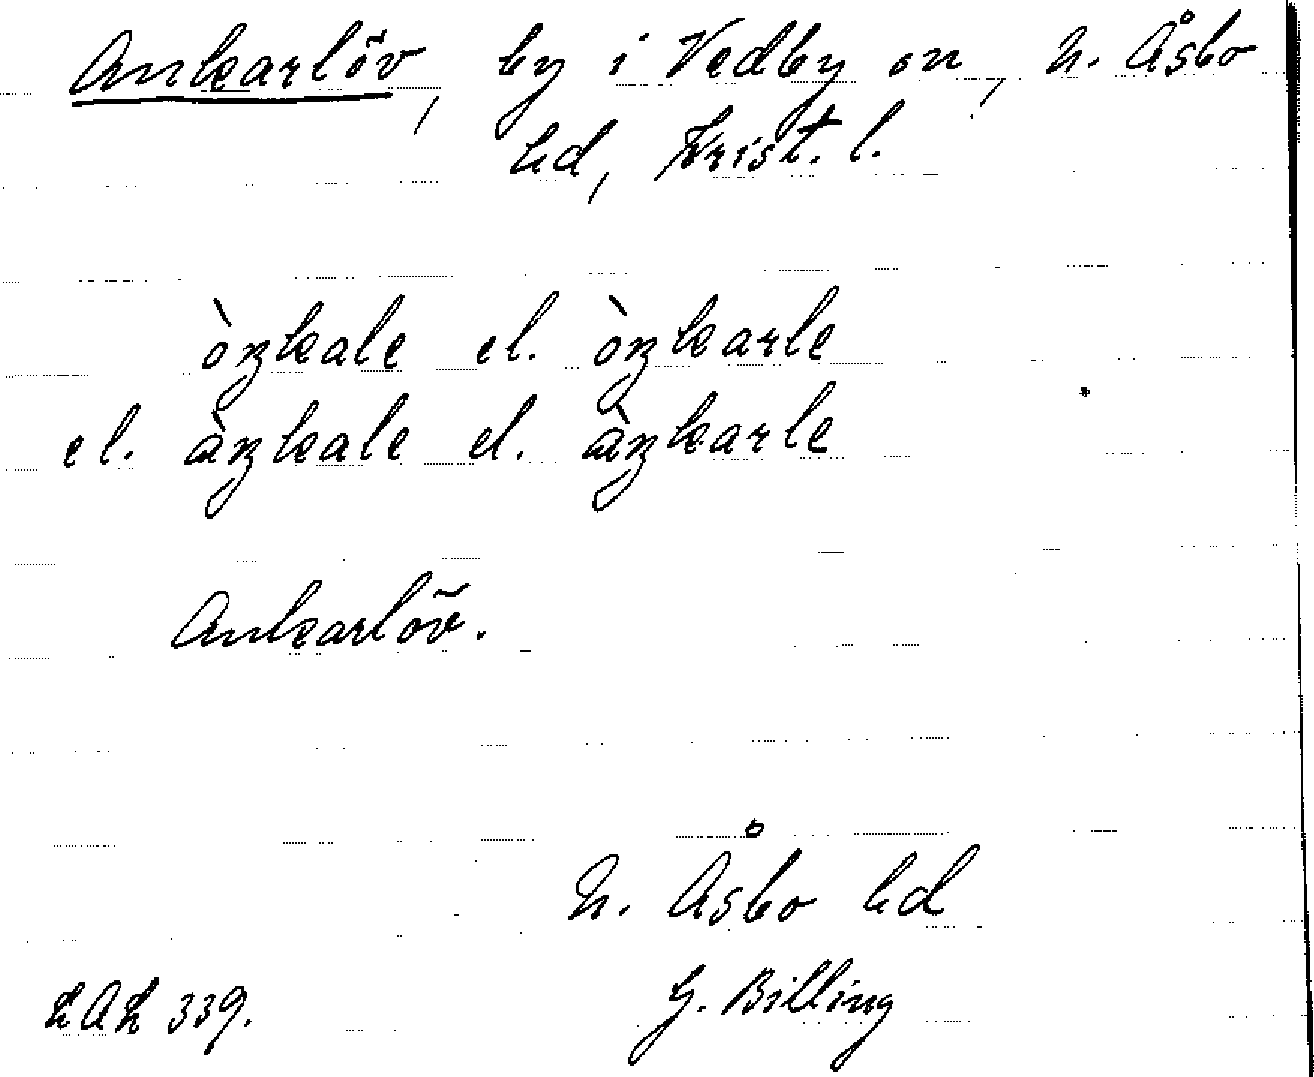 Ankarlöv, by i Vedby sn, N. Åsbo
hd, Krist. l.
òŋkale el. òŋkarle
el. àŋkale el. àŋkarle
Ankarlöv.
N. Åsbo hd
LAL 339. G. Billing